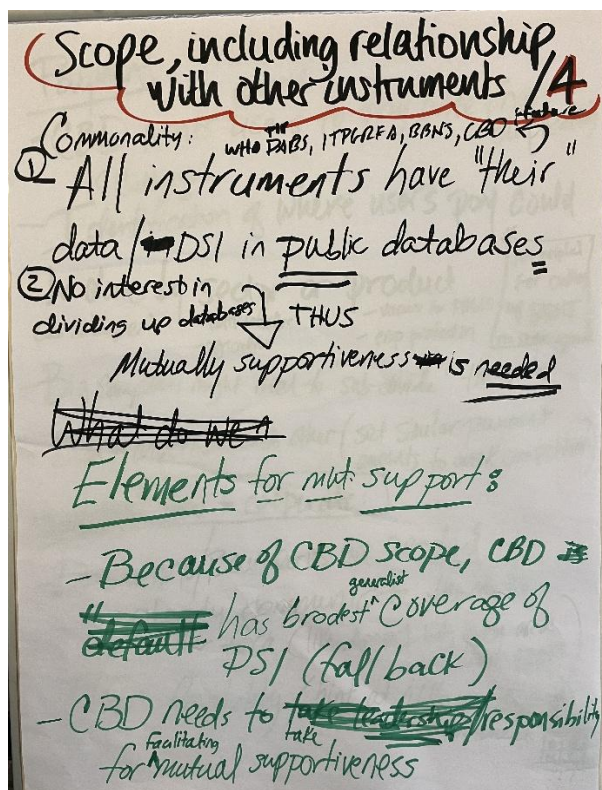 Scope, including relationship
with other instruments /4
Commonality: WHO PABS, ITPGRFA, BBNJ, CBD
① All instruments have "their"
data / DSI in public databases
② No interest in
dividing up databases THUS
Mutually supportiveness is needed
What do we
Elements for mut. support:
- Because of CBD scope, CBD
"default" has brodest generalist coverage of
DSI (fall back)
- CBD needs to take leadership/responsibility
take
for facilitating mutual supportiveness